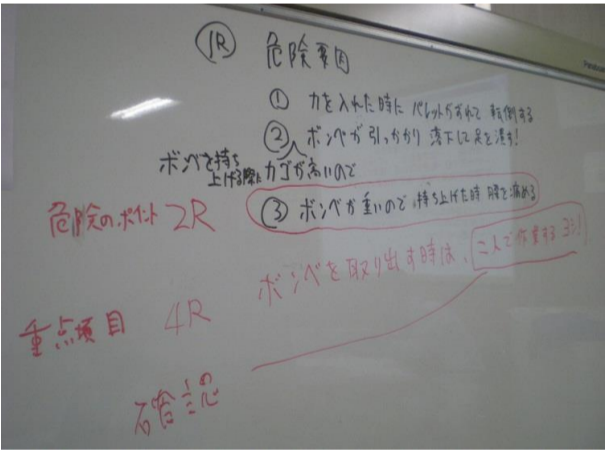 1R 危険要因
① 力を入れた時に パレットがずれて 転倒する
② ボンベが引っかかり 落下して足を潰す!
ボンベを持ち上げる際に カゴが高いので
危険のポイント 2R
③ ボンベが重いので 持ち上げた時 腰を痛める
ボンベを取り出す時は、二人で作業する ヨシ!
重点項目 4R
確認